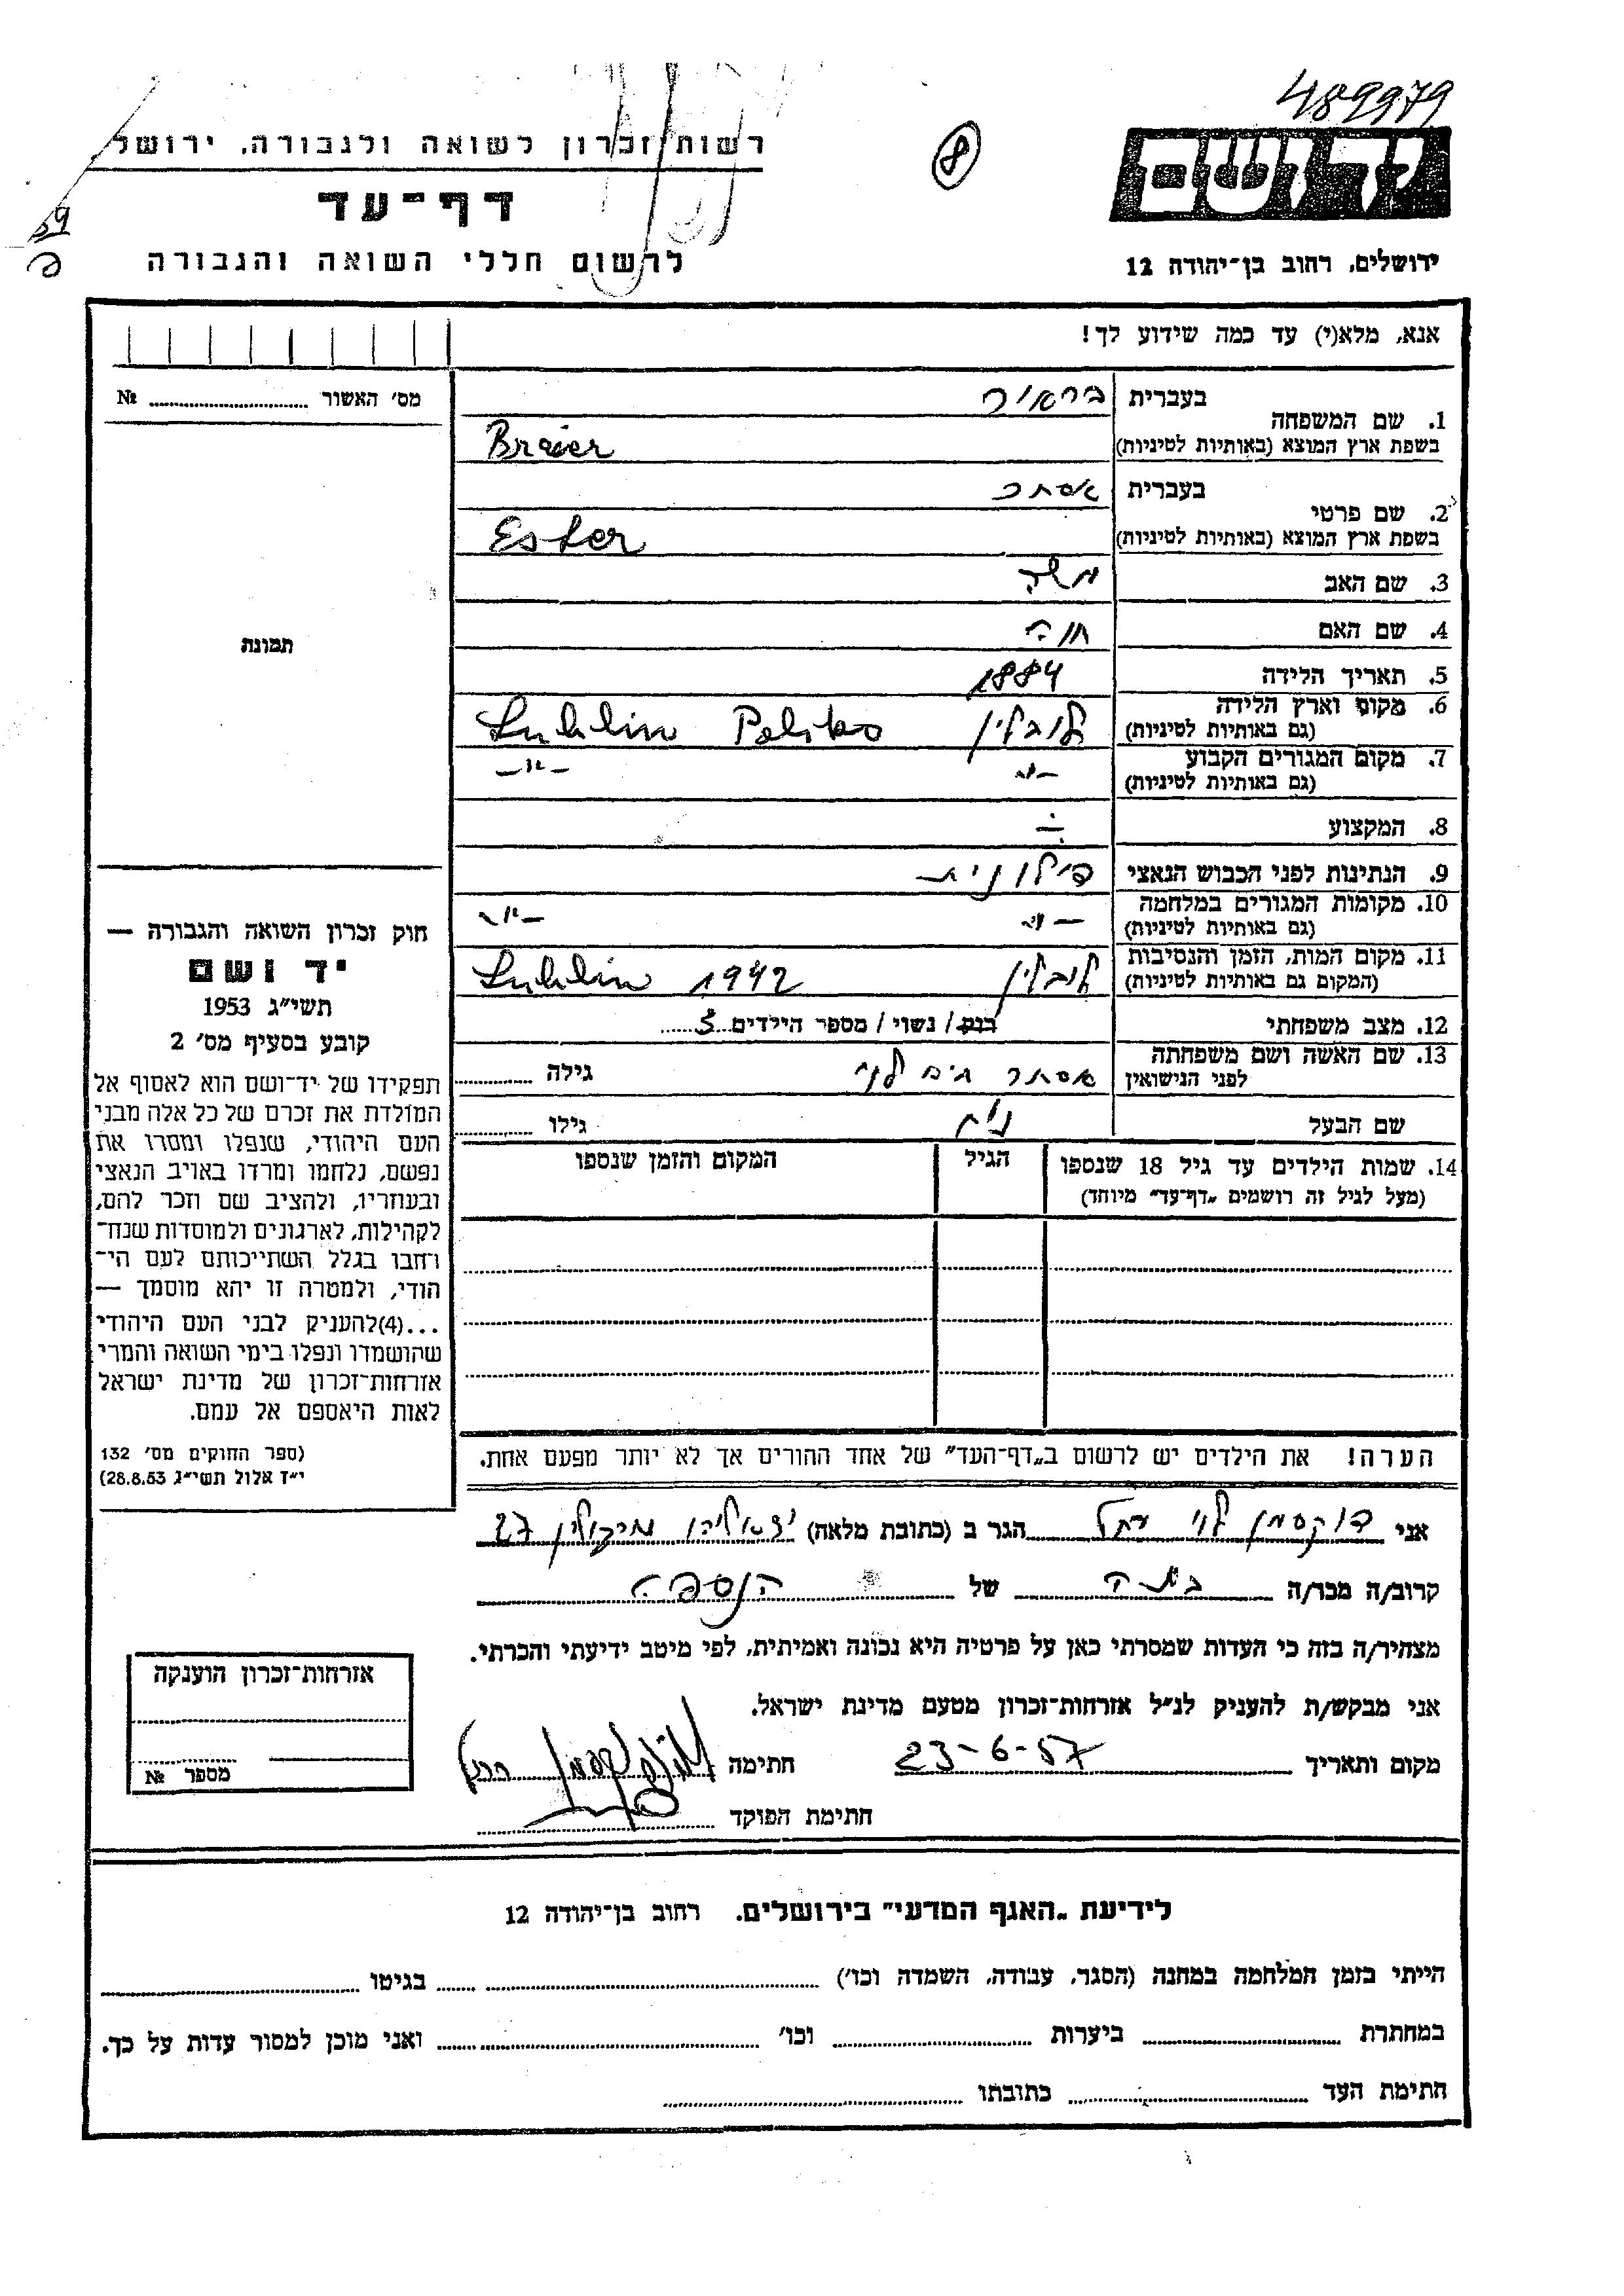 489979
רשות זכרון לשואה ולגבורה, ירושל
8
ידושם
דף-עד
לרשום חללי השואה והגבורה
ירושלים, רחוב בן-יהודה 12
אנא, מלא(י) עד כמה שידוע לך!
מס׳ האשור № 
1. שם המשפחה
בעברית
בראיר
בשפת ארץ המוצא (באותיות לטיניות)
Braier
2. שם פרטי
בעברית
אסתר
בשפת ארץ המוצא (באותיות לטיניות)
Ester
3. שם האב משה
4. שם האם חוה
5. תאריך הלידה 1884
6. מקום וארץ הלידה לובלין Lublin Polska
(גם באותיות לטיניות)
7. מקום המגורים הקבוע -״- -״-
(גם באותיות לטיניות)
8. המקצוע
9. הנתינות לפני הכבוש הנאצי פולונית
10. מקומות המגורים במלחמה -״- -״-
(גם באותיות לטיניות)
11. מקום המות, הזמן והנסיבות לובלין 1942 Lublin
(המקום גם באותיות לטיניות)
12. מצב משפחתי רווק / נשוי / מספר הילדים 3
13. שם האשה ושם משפחתה אסתר גילה
לפני הנישואין
שם הבעל גילו
14. שמות הילדים עד גיל 18 שנספו הגיל המקום והזמן שנספו
(מעל לגיל זה רושמים „דף-עד״ מיוחד)
תמונה
חוק זכרון השואה והגבורה —
יד ושם
תשי״ג 1953
קובע בסעיף מס׳ 2
תפקידו של יד-ושם הוא לאסוף אל
המולדת את זכרם של כל אלה מבני
העם היהודי, שנפלו ומסרו את
נפשם, נלחמו ומרדו באויב הנאצי
ובעוזריו, ולהציב שם וזכר להם,
לקהילות, לארגונים ולמוסדות שנח-
רחבו בגלל השתייכותם לעם הי-
הודי, ולמטרה זו יהא מוסמך —
...(4)להעניק לבני העם היהודי
שהושמדו ונפלו בימי השואה והמרי
אזרחות-זכרון של מדינת ישראל
לאות היאספם אל עמם.
(ספר החוקים מס׳ 132
י״ז אלול תשי״ג 28.8.53)
הערה! את הילדים יש לרשום ב„דף-העד״ של אחד ההורים אך לא יותר מפעם אחת.
אני לוי רחל הגר ב (כתובת מלאה) 27
קרוב/ה מכר/ה בתה של הנספה
מצהיר/ה בזה כי העדות שמסרתי כאן על פרטיה היא נכונה ואמיתית, לפי מיטב ידיעתי והכרתי.
אני מבקש/ת להעניק לנ״ל אזרחות-זכרון מטעם מדינת ישראל.
מקום ותאריך 23-6-57 חתימה
חתימת הפוקד
אזרחות-זכרון הוענקה
מספר №
לידיעת „האגף המדעי״ בירושלים. רחוב בן-יהודה 12
הייתי בזמן המלחמה במחנה (הסגר, עבודה, השמדה וכו׳) בגיטו
במחתרת ביערות וכו׳ ואני מוכן למסור עדות על כך.
חתימת העד כתובתו